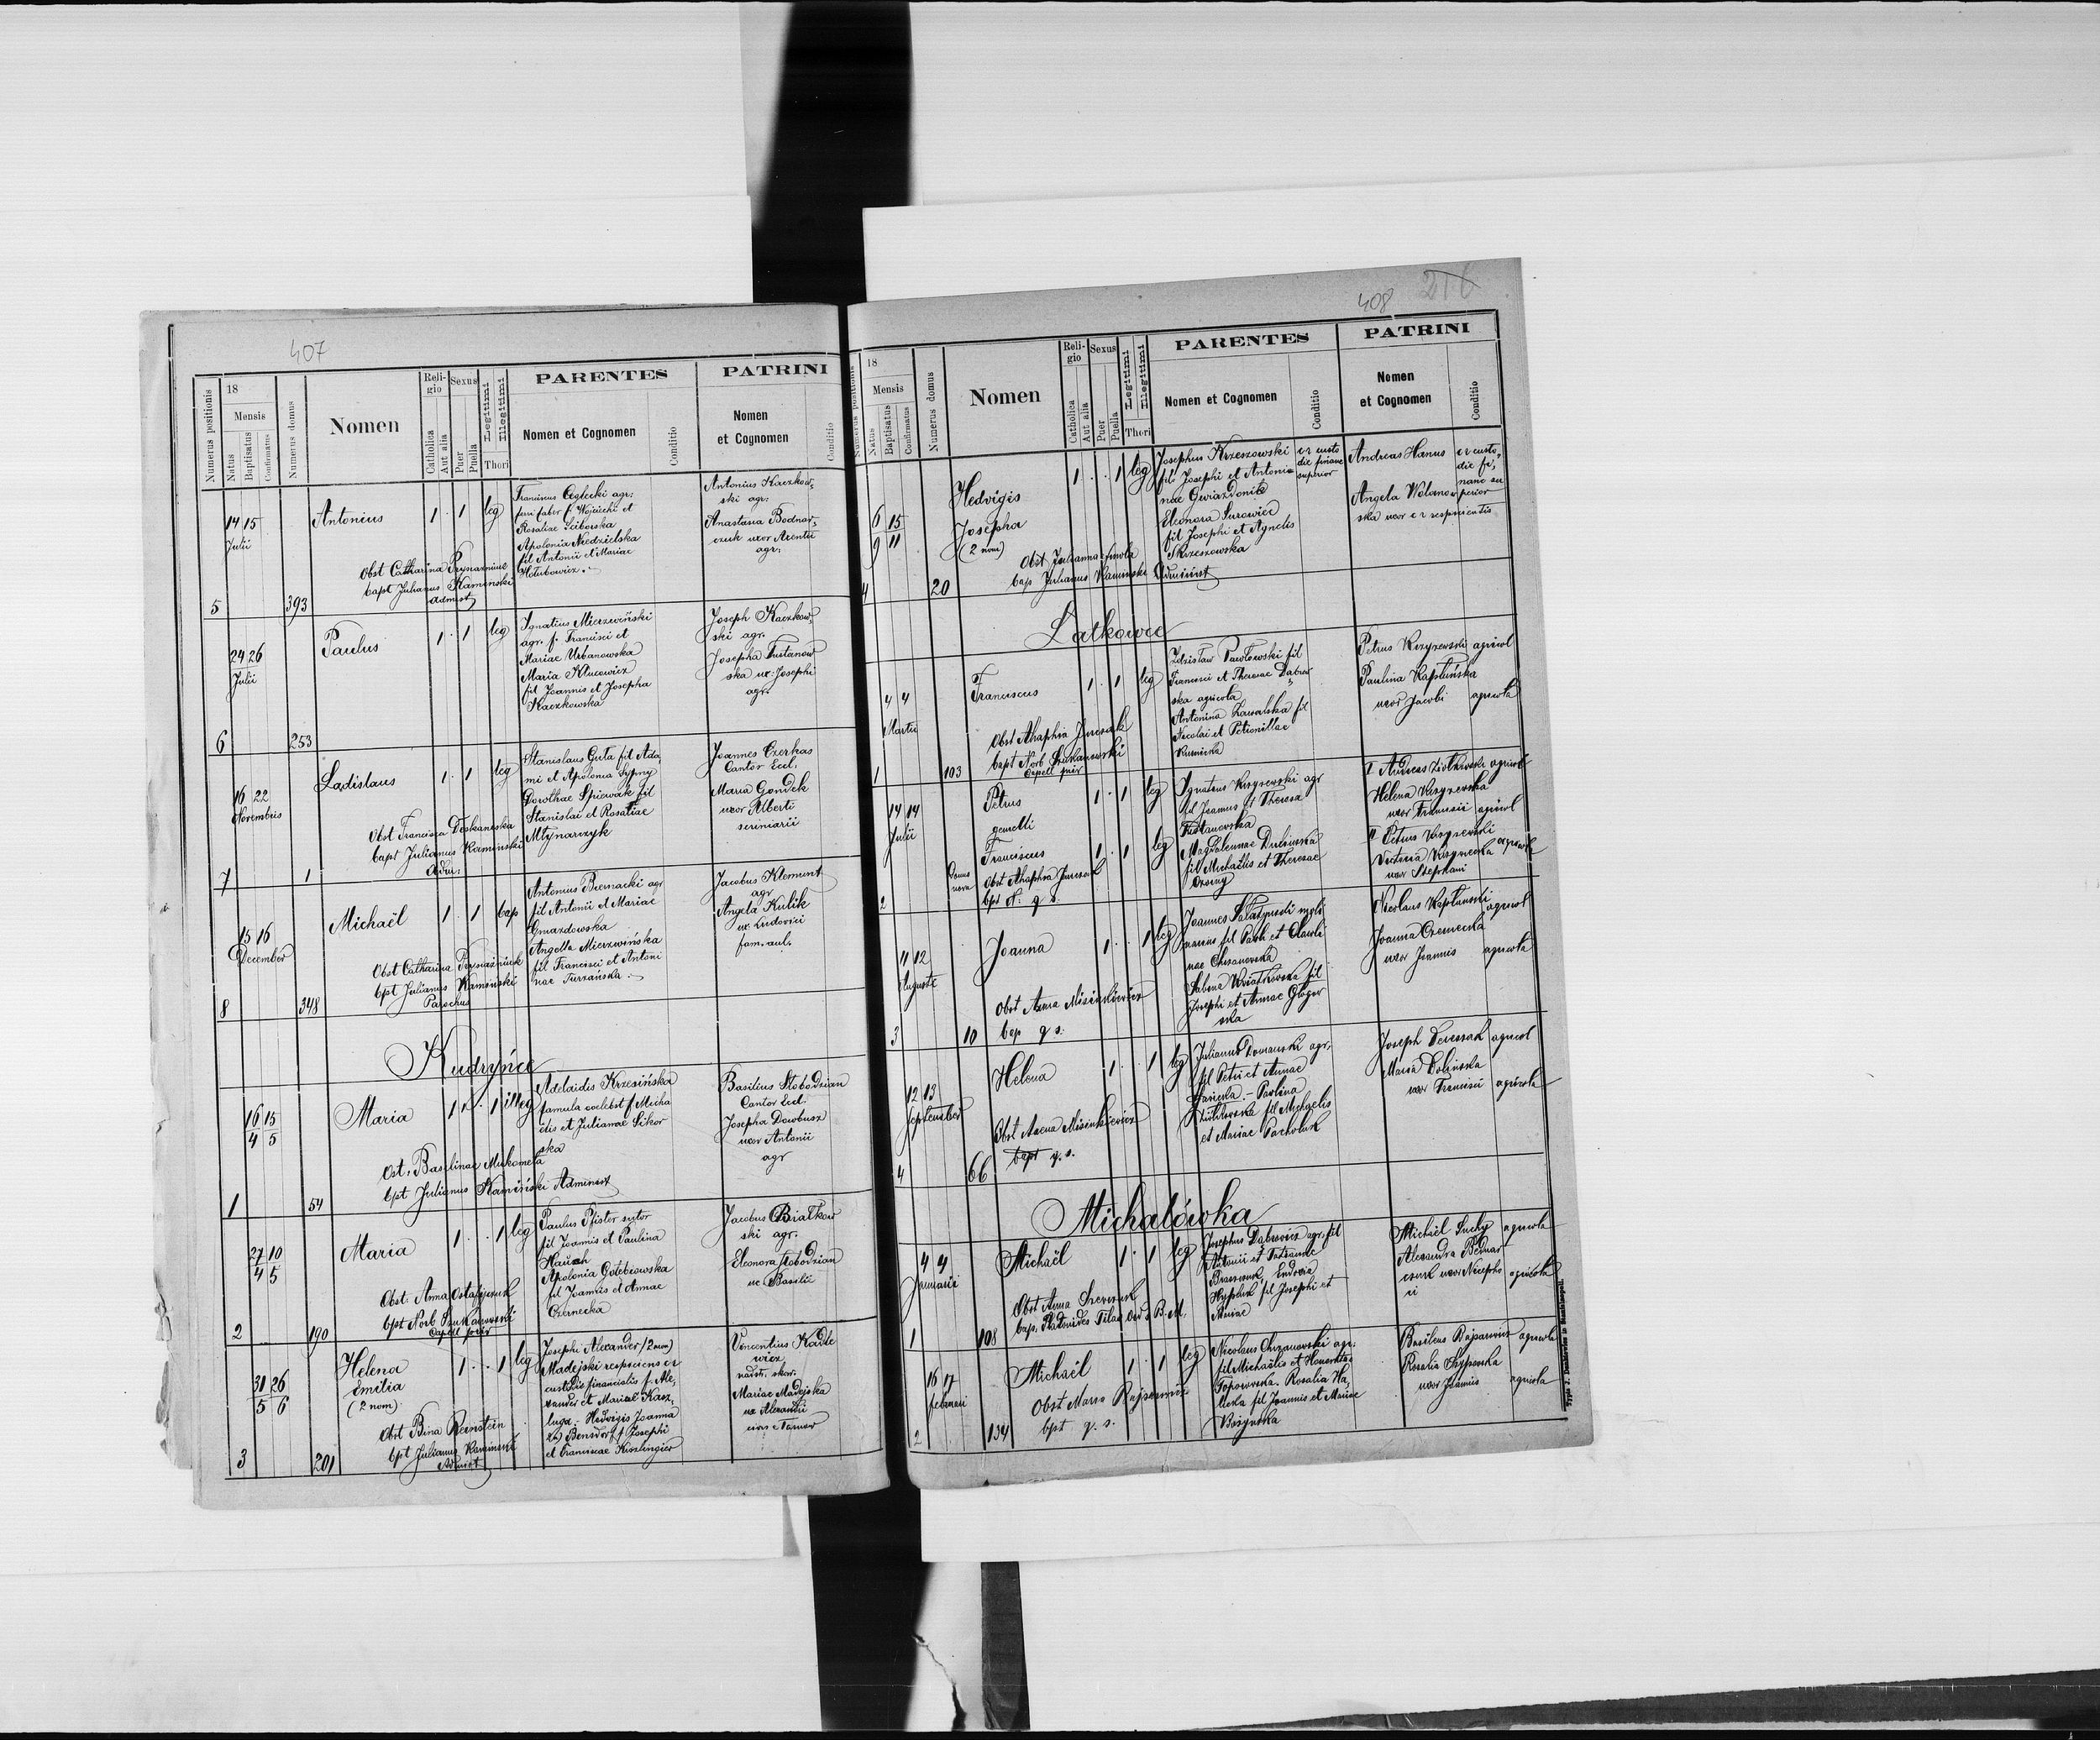 407
Numerus positionis
18
Mensis
Natus
Baptisatus
Confirmatus
Numerus domus
Nomen
Religio
Catholica
Aut alia
Sexus
Puer
Puella
Legitimi
Illegitimi
Thori
PARENTES
Nomen et Cognomen
Conditio
PATRINI
Nomen
et Cognomen
Conditio
5
14 15
Julii
393
Antonius
1 . 1 leg
Obst Catharina
bapt Julianus Kaminski
Admst
Franciscus Ceglecki agr:
ferri faber f. Wojciechi et
Rosaliae Sciborska
Apolonia Niedzielska
fil Antonii et Mariae
Hołubowicz.
Antonius Kaczkow-
ski agr:
Anastasia Bodnar-
czuk uxor Arentii
agr:
6
24 26
Julii
253
Paulus
1 . 1 leg
Ignatius Mierzwiński
agr. f. Francisci et
Mariae Urbanowska
Maria Klucewicz
fil Joannis et Josepha
Kaczkowska
Joseph Kaczkow-
ski agr.
Josepha Tustanow
ska ux: Josephi
agr.
7
16 22
Novembris
1
Ladislaus
1 . 1 leg
Obst Francisca
bapt Julianus Kaminski
Adm:
Stanislaus Guta fil Ada-
mi et Apolonia
Dorothae Spiewak fil
Stanislai et Rosaliae
Młynarczyk
Joannes Czerkas
Cantor Eccl.
Maria Gondek
uxor Alberti
scriniarii
8
15 16
December
348
Michaël
1 . 1 bap
Obst Catharina
bpt Julianus Kaminski
Parochus
Antonius Biernacki agr
fil Antonii et Mariae
Gniazdowska
Angella Mierzwińska
fil Francisci et Antoni
nae Turzańska.
Jacobus Klement
agr
Angela Kulik
ux: Ludovici
fam. aul.
Kudryńce
1
16 15
4 5
54
Maria
1 . 1 illeg
Ost. Basilinae Mukomela
bpt Julianus Kaminski Administ
Adelaidis Krzesińska
famula coelebst f Micha
elis et Julianae Sikor
ska
Basilius Słobodzian
Cantor Eccl.
Josepha Dowbusz
uxor Antonii
agr
2
27 10
4 5
190
Maria
1 . . 1 leg
Obst: Anna Ostafijczuk
bpt Norb Szukanowski
Capell prior
Paulus Pfister sutor
fil Joannis et Paulina
Hauch
Apolonia Gołebiowska
fil Joannis et Annae
Czernecka
Jacobus Białkow
ski agr.
Eleonora Słobodzian
ux Basilii
3
31 26
5 6
201
Helena
Emilia
(2 nom)
1 . . 1 leg
Obst Bina Reinstein
bpt Julianus Kaminski
Admist
Josephi Alexander (2 nom)
Madejski respiciens cr
custodie financialis f. Ale-
xander et Mariae Kasz-
luga - Hedvigis Joanna
Bensdorf f Josephi
et Franciscae Kiszlingier
Vincentius Kadle
wicz
Mariae Madejska
ux Alexandri
408
216
Numerus positionis
18
Mensis
Natus
Baptisatus
Confirmatus
Numerus domus
Nomen
Religio
Catholica
Aut alia
Sexus
Puer
Puella
Legitimi
Illegitimi
Thori
PARENTES
Nomen et Cognomen
Conditio
PATRINI
Nomen
et Cognomen
Conditio
4
6 15
9 11
20
Hedvigis
Josepha
(2 nom)
1 . . 1 leg
Obst Julianna Smola
bap Julianus Kaminski Administ
Josephus Krzeszowski
fil Josephi et Antoni-
nae Gwiazdonik
Eleonora Surowiec
fil Josephi et Agnetis
Skrzeszowska
cr custo
die financ
superior
Andreas Hanus
Angela Wolanow
ska uxor cr respicientis
cr custo-
die fi-
nanc su
perior
Latkowce
1
4 4
Martii
103
Franciscus
1 . 1 leg
Obst Ahaphia Jurczak
bapt Norb Szukanowski
Capell prior
Zdzisław Pawłowski fil
Francisci et Theresae Dabrow
ska agricola
Antonina Zawalska fil
Nicolai et Petionillae
Kuzniecka
Petrus Krzyzewski agricol
Paulina Kaplańska
uxor Jacobi agricola
2
14 14
Julii
Domus
nova
Petrus
gemelli
Franciscus
1 . 1 leg
1 . 1 leg
Obst Ahaphia Jurczak
bpt N. q s.
Ignatius Krzyzewski agr
fil Joannis et Theresa
Tustanowska
Magdalennae Dulinska
fil Michaëlis et Theresae
I Andreas Ziolkowski agricol
Helena Krzyzewska
uxor Francisci agricol
II Petrus Krzyzewski
Victoria Krzyzewska agricola
uxor Stephani
3
11 12
Augusti
10
Joanna
1 . . 1 leg
Obst Anna Misinkiewicz
bap q s.
Joannes Salatynski
fil Pauli et Caroli
nae Chrzanowska
Sabina Kwiatkowska fil
Josephi et Annae Głogow
ska
Nicolaus Kaplanski agricol
Joanna Czernecka
uxor Joannis agricola
4
12 13
September
66
Helena
1 . 1 leg
Obst Anna Misinkiewicz
bapt q. s.
Julianus Domanski agr.
fil Petri et Annae
Janicka. - Paulina
Ziołkowska fil Michaelis
et Mariae Pacholak
Joseph Dereszak agricol
Maria Dolinska
uxor Francisci agricola
Michałówka
1
4 4
Januarii
108
Michaël
1 . 1 leg
Obst Anna Szewczuk
bap. Radonides Ord S. B. M.
Josephus Dabrowicz agr. fil
Antonii et
Eudocia
fil Josephi et
Annae
Michael Suchy agricola
Alexandra Bednar
czuk uxor Nicepho
ri agricola
2
16 17
februarii
134
Michaël
1 . 1 leg
Obst Maria Rajzarowicz
bpt q. s.
Nicolaus Chrzanowski agr.
fil Michaëlis et
Toporowska. Rosalia Ha-
licka fil Joannis et Mariae
Basileus Rajzarowicz agricola
Rosalia
uxor Joannis agricola